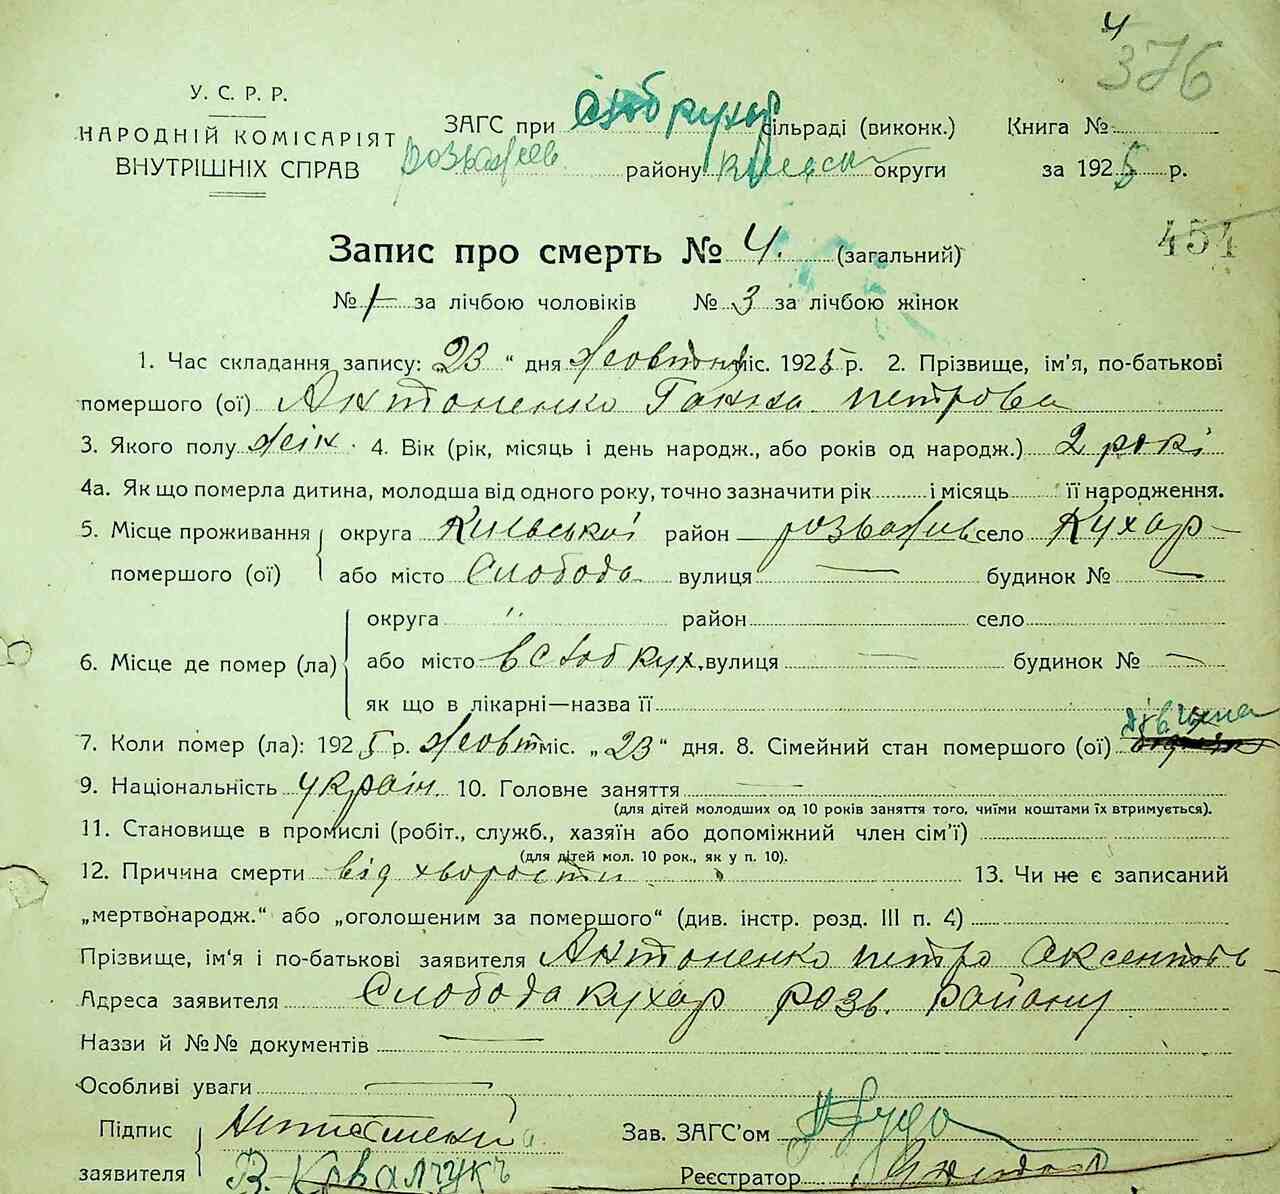 4
376
У. С. Р. Р.
НАРОДНІЙ КОМІСАРІЯТ
ВНУТРІШНІХ СПРАВ
ЗАГС при Слоб кухар сільраді (виконк.) Книга №
розважев району Київськ округи за 1925 р.
454
Запис про смерть № 4. (загальний)
№ 1 за лічбою чоловіків № 3 за лічбою жінок
1. Час складання запису: 23 " дня жовтня міс. 1925 р. 2. Прізвище, ім'я, по-батькові
помершого (ої) Антоненко Ганна петрова
3. Якого полу жін. 4. Вік (рік, місяць і день народж., або років од народж.) 2 рокі
4а. Як що померла дитина, молодша від одного року, точно зазначити рік і місяць її народження.
5. Місце проживання округа Київської район розважив село Кухар-
помершого (ої) або місто Слобода вулиця — будинок № —
округа " район село
6. Місце де помер (ла) або місто в Слоб кух. вулиця — будинок № —
як що в лікарні—назва її
7. Коли помер (ла): 1925 р. жовт міс. „23" дня. 8. Сімейний стан помершого (ої) дівчина
9. Національність україн. 10. Головне заняття —
(для дітей молодших од 10 років заняття того, чиїми коштами їх втримується).
11. Становище в промислі (робіт., служб., хазяїн або допоміжний член сім'ї)
(для дітей мол. 10 рок., як у п. 10).
12. Причина смерти від хворости 13. Чи не є записаний
„мертвонародж." або „оголошеним за помершого" (див. інстр. розд. III п. 4)
Прізвище, ім'я і по-батькові заявителя Антоненко петро Аксентьев-
Адреса заявителя Слобода кухар розв. району
Назви й №№ документів —
Особливі уваги —
Підпис
Зав. ЗАГС'ом
заявителя В. Ковалчукъ Реєстратор